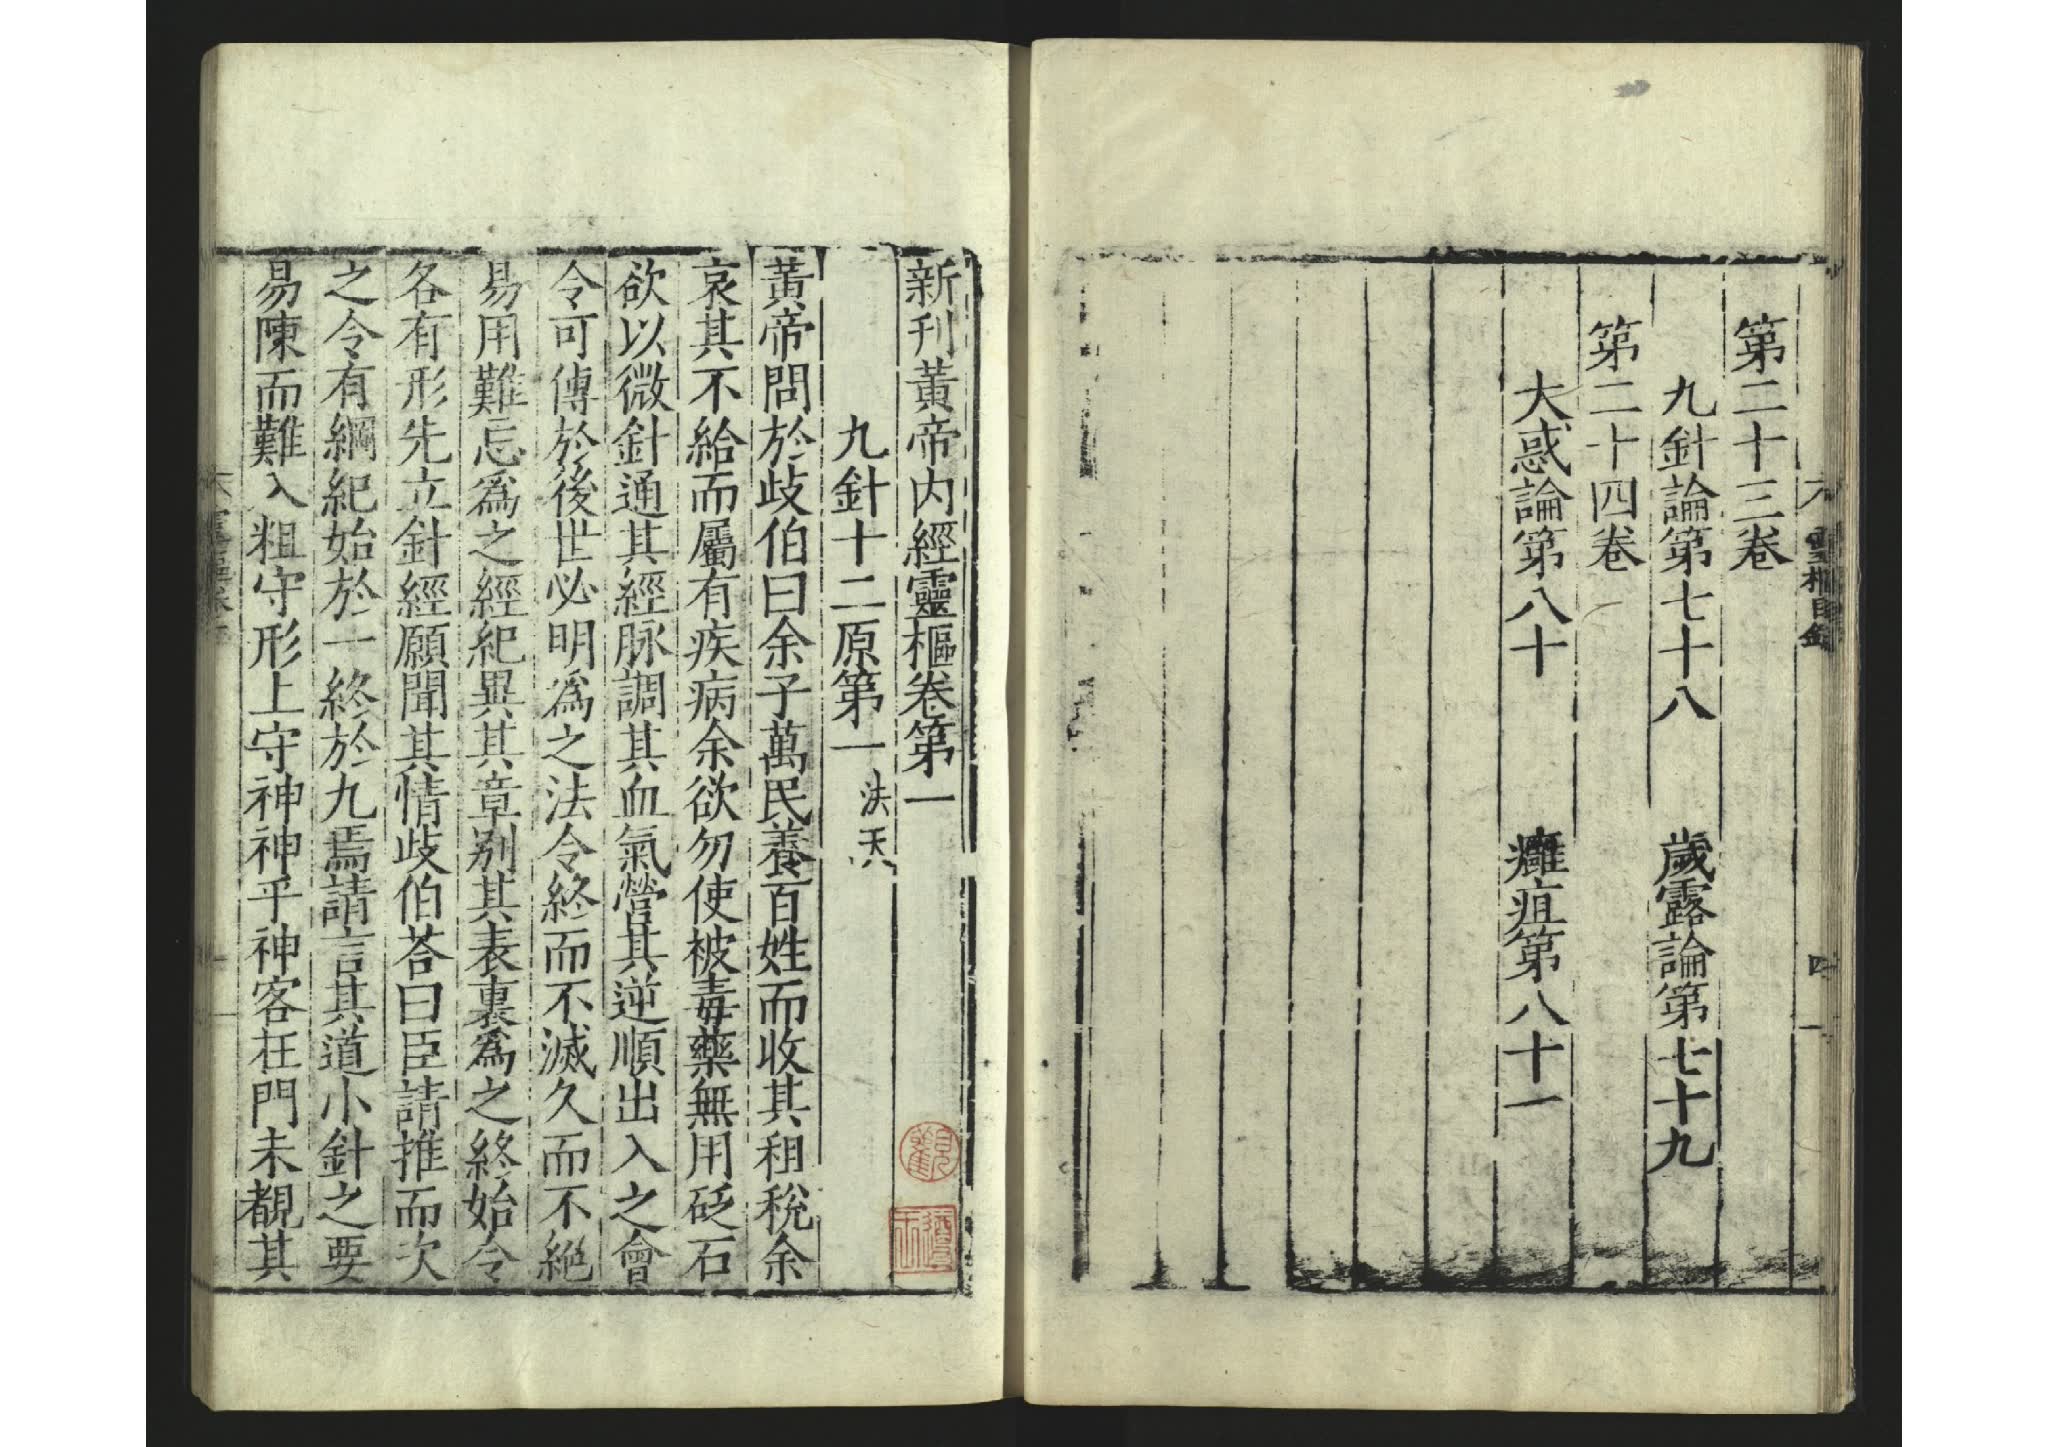 第二十三卷
九針論第七十八 歲露論第七十九
第二十四卷
大惑論第八十 癰疽第八十一
新刊黃帝内經靈樞卷第一
九針十二原第一 法天
黃帝問於歧伯曰余子萬民養百姓而收其租稅余
哀其不給而屬有疾病余欲勿使被毒藥無用砭石
欲以微針通其經脉調其血氣營其逆順出入之會
令可傳於後世必明爲之法令終而不滅久而不絕
易用難忘爲之經紀異其章别其表裏爲之終始令
各有形先立針經願聞其情歧伯荅曰臣請推而次
之令有綱紀始於一終於九焉請言其道小針之要
易陳而難入粗守形上守神神乎神客在門未覩其